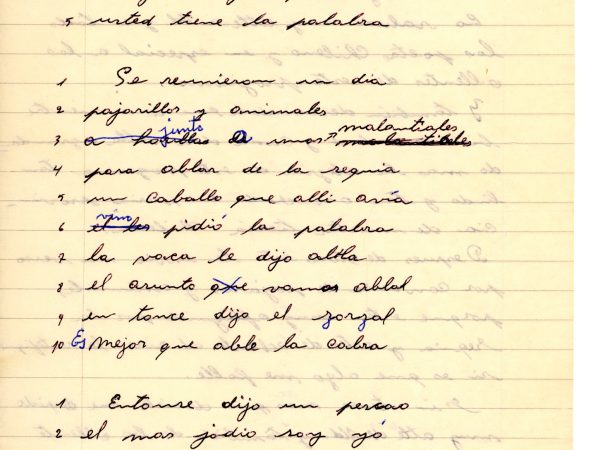 5 usted tiene la palabra
1 Se reunieron un dia
2 pajarillos y animales
3 a horillas junto a unos malantiales
4 para ablar de la sequia
5 un caballo que alli avía
6 el les vino pidió la palabra
7 la vaca le dijo abla
8 el asunto que vamos ablal
9 en tonce dijo el zorzal
10 Es mejor que able la cabra
1 Entonse dijo un pescao
2 el mas jodio soy yó